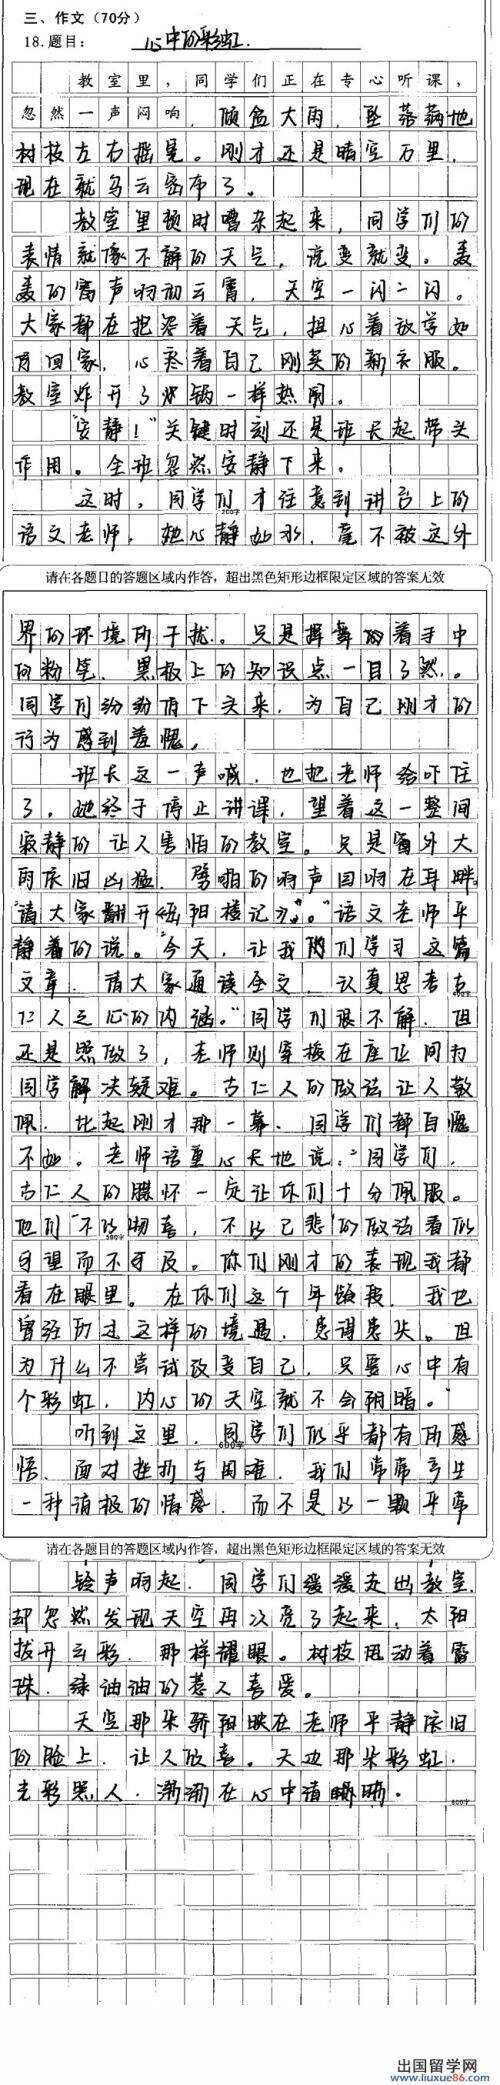 三、作文（70分）
18.题目： 心中的彩虹.
教室里，同学们正在专心听课，
忽然一声闷响，倾盆大雨，坠落满地
树枝左右摇晃。刚才还是晴空万里，
现在就乌云密布了。
教室里顿时嘈杂起来，同学们的
表情就像不解的天气，说变就变。轰
轰的雷声响彻云霄，天空一闪一闪。
大家都在抱怨着天气，担心着放学如
何回家，心疼着自己刚买的新衣服。
教室炸开了火锅一样热闹。
"安静！"关键时刻还是班长起带头
作用。全班忽然安静下来。
这时，同学们才注意到讲台上的
200字
语文老师，她心静如水，毫不被这外
请在各题目的答题区域内作答，超出黑色矩形边框限定区域的答案无效
界的环境所干扰。只是挥舞的着手中
的粉笔，黑板上的知识点一目了然。
同学们纷纷低下头来，为自己刚才的
行为感到羞愧。
班长这一声喊，也把老师给吓住
了。她终于停止讲课，望着这一整间
寂静的让人害怕的教室。只是窗外大
雨依旧凶猛，劈啪的响声回响在耳畔。
"请大家翻开《岳阳楼记》。"语文老师平
静着的说。"今天，让我们学习这篇
文章，请大家通读全文，认真思考古
仁人之心的内涵。"同学们很不解，但
还是照做了，老师则穿梭在座位间为
同学解决疑难。古仁人的做法让人敬
佩，比起刚才那一幕，同学们都自愧
不如。老师语重心长地说："同学们，
古仁人的胸怀一定让你们十分佩服。
他们'不以物喜，不以己悲'的做法看似
可望而不可及。你们刚才的表现我都
看在眼里。在你们这个年龄段，我也
曾经历过这样的境遇，患得患失。但
为什么不尝试改变自己，只要心中有
个彩虹，内心的天空就不会阴暗。"
听到这里，同学们似乎都有所感
600字
悟，面对挫折与困难，我们常常产生
一种消极的情感，而不是以一颗平常
请在各题目的答题区域内作答，超出黑色矩形边框限定区域的答案无效
铃声响起，同学们缓缓走出教室，
却忽然发现天空再次亮了起来，太阳
拨开云彩，那样耀眼。树枝甩动着露
珠，绿油油的惹人喜爱。
天空那朵骄阳映在老师平静依旧
的脸上，让人欣喜。天边那朵彩虹，
光彩照人，渐渐在心中清晰。
800字
出国留学网
www.liuxue86.com